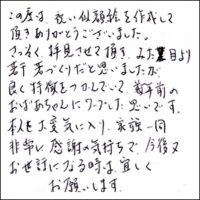 この度は、祝い似顔絵を作成して
頂きありがとうございました。
さっそく拝見させて頂き、みた目より
若干若づくりだと思いましたが
良く特徴をつかんでいて、数年前の
おばあちゃんにワープした思いです。
本人も大変気に入り、家族一同
非常に感謝の気持ちで、今後又
お世話になる時は宜しく
お願いします。